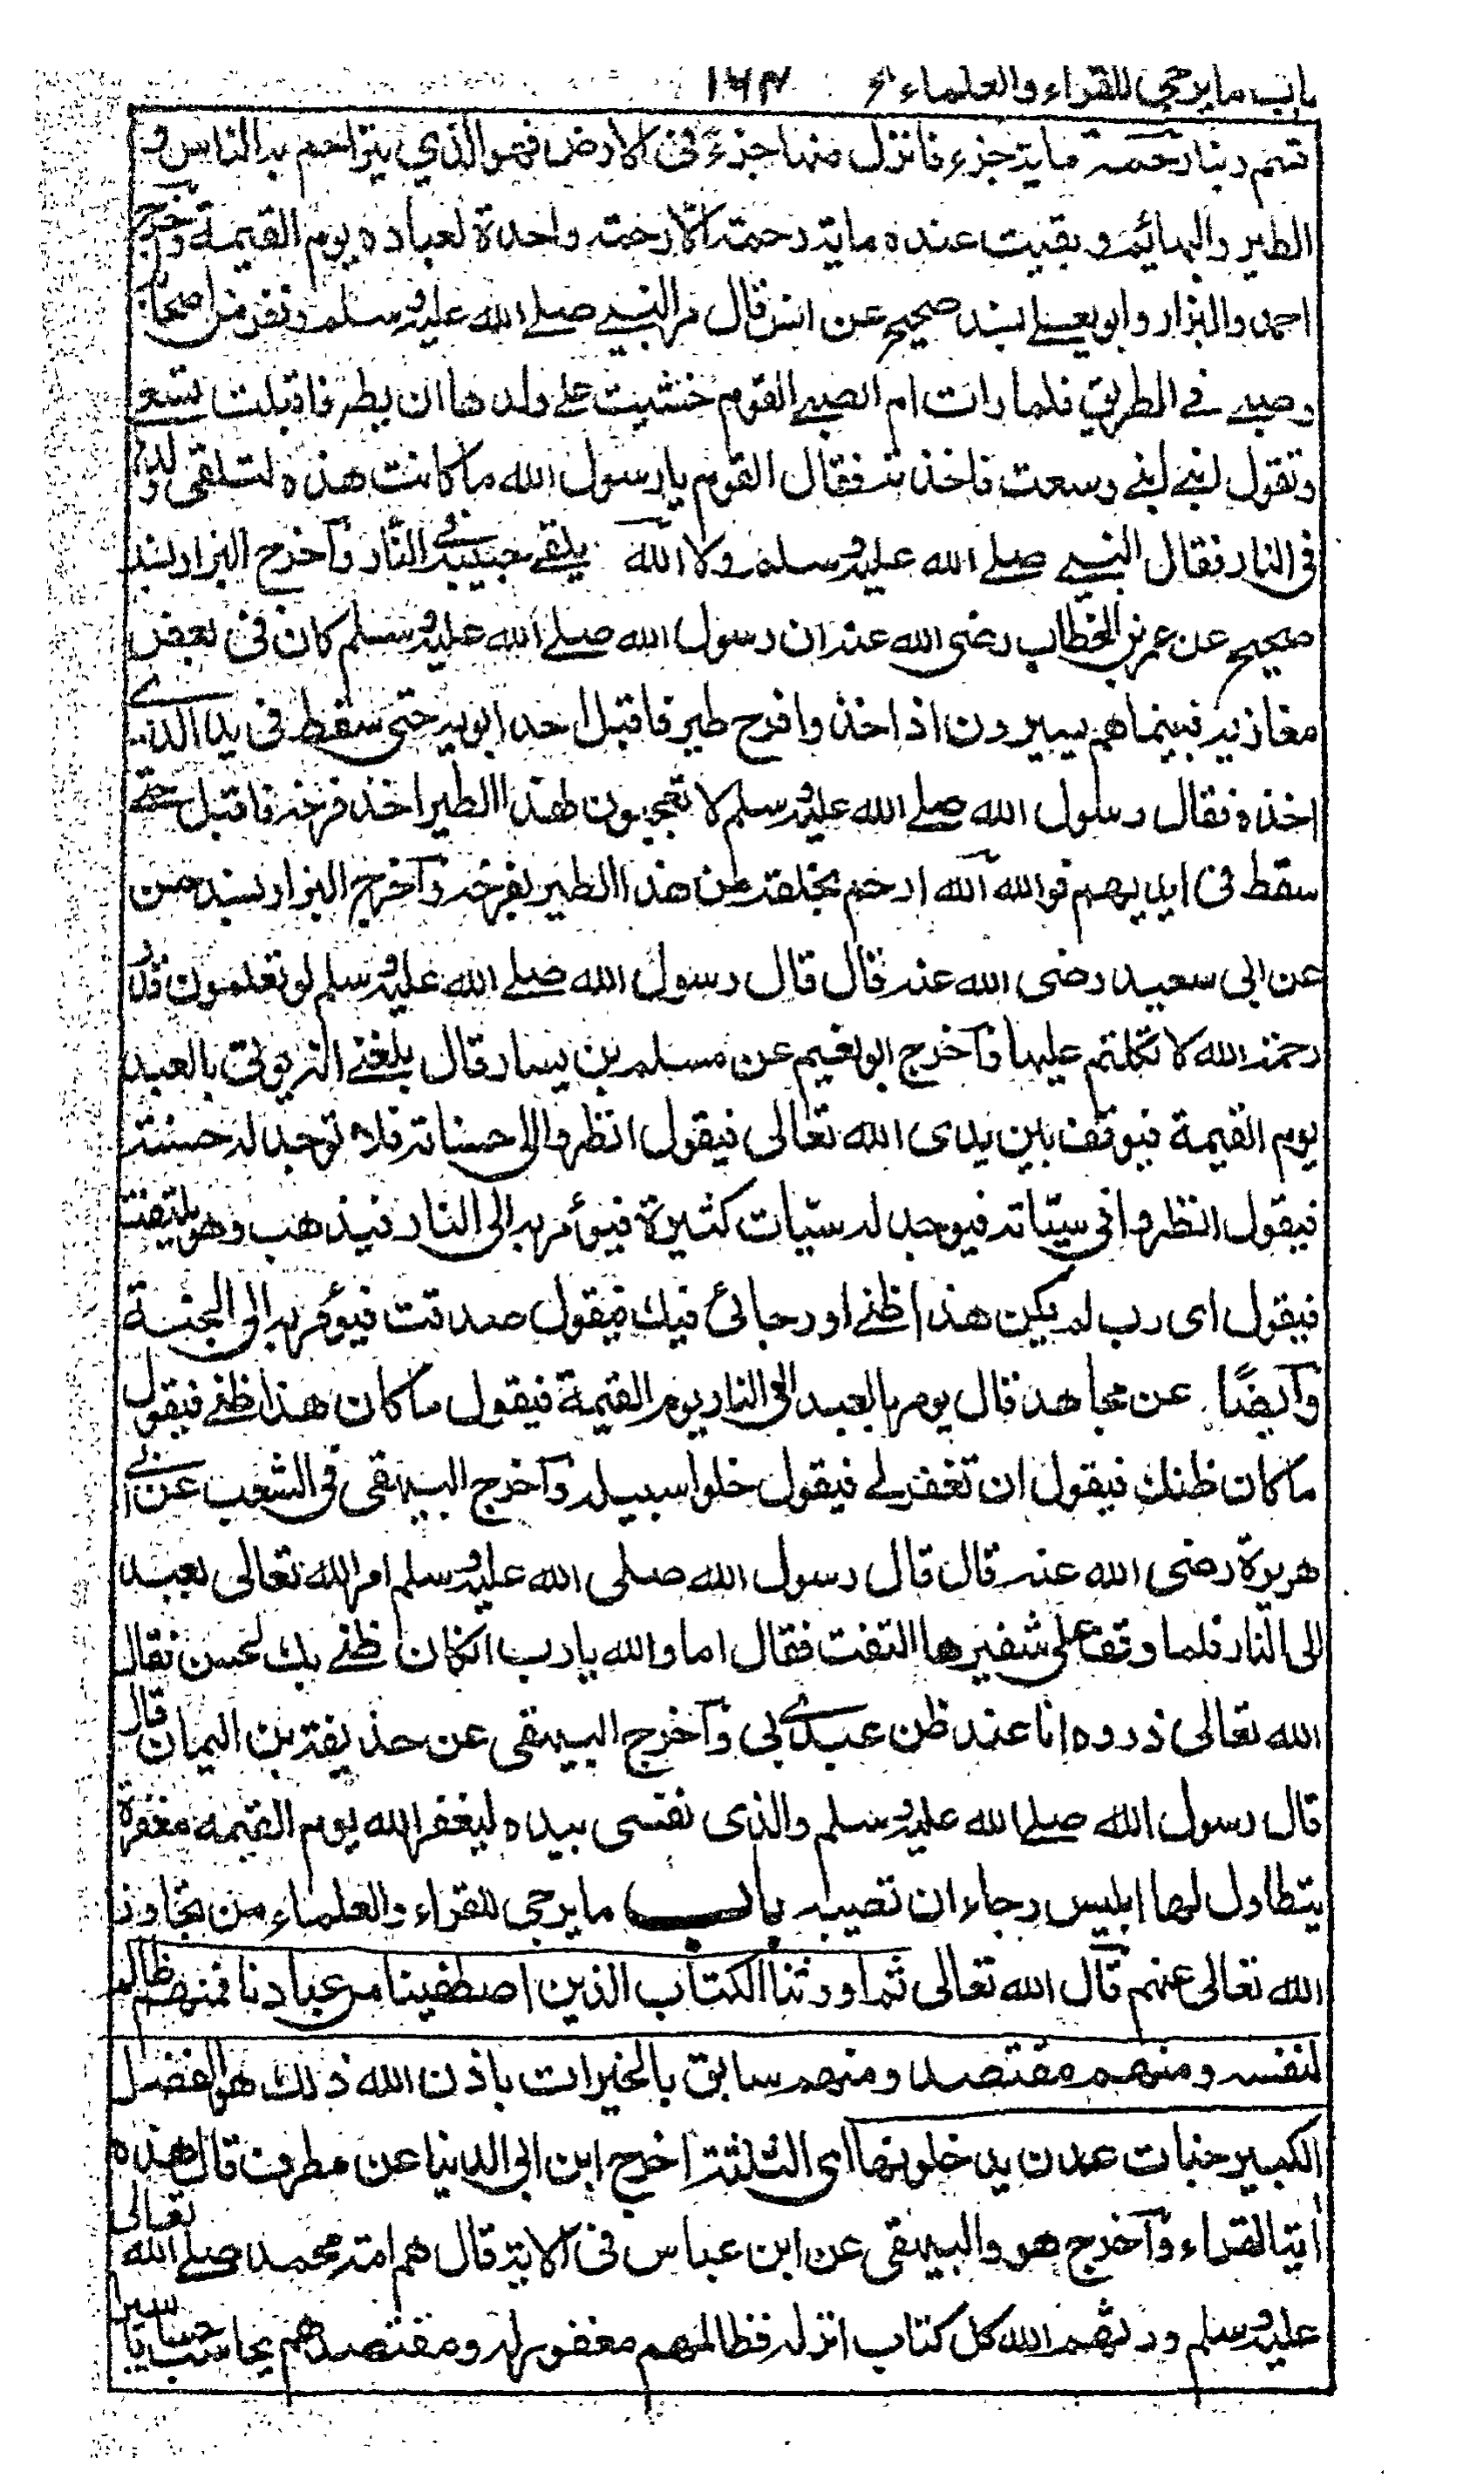 باب ما يرجى للقراء والعلماء ١٦٣
قسم ربنا رحمته مایة جزء فانزل منها جزءً فی الارض فهو الذي يتراحم به الناس و
الطير والبهائم و بقيت عنده ماية رحمة الا رحمة واحدة لعباده يوم القيمة وآخرج
احمد والبزار وابو يعلے بسند صحيح عن انس قال مر النبے صلے الله علیه وسلم ونفر من اصحابه
وصبے فے الطريق فلما رات ام الصبے القوم خشيت علے ولدها ان يطر فاقبلت تسعے
وتقول ابنے ابنے وسعت فاخذته فقال القوم يا رسول الله ما كانت هذه لتلقى ولدها
فی النار فقال النبے صلے الله علیه وسلم ولا الله يلقے حبيبه فے النار وآخرج البزار بسند
صحيح عن عمر بن الخطاب رضی الله عنه ان رسول الله صلے الله علیه وسلم كان فی بعض
مغازيه فبينما هم يسيرون اذ اخذوا فرخ طير فاقبل احد ابويه حتى سقط فی يد الذے
اخذه فقال رسول الله صلے الله علیه وسلم لا تعجبون لهذا الطير اخذ فرخه فاقبل حتے
سقط فی ايديهم فوالله الله ارحم بخلقه من هذا الطير بفرخه وآخرج البزار بسند حسن
عن ابی سعيد رضی الله عنه قال قال رسول الله صلے الله علیه وسلم لو تعلمون قدر
رحمة الله لاتكلتم عليها وآخرج ابو نعيم عن مسلم بن يسار قال بلغنے انه يوتی بالعبد
يوم القيمة فيوقف بين يدی الله تعالى فيقول انظروا الى حسناته فلا توجد له حسنة
فيقول انظروا فی سيّاته فيوجد له سيّات كثيرة فيؤمر به الى النار فيذهب وهو يلتفت
فيقول ای رب لم يكن هذا ظنے او رجائی فيك فيقول صدقت فيؤمر به الى الجنة
وآيضًا عن مجاهد قال يومر بالعبد الى النار يوم القيمة فيقول ما كان هذا ظنے فيقول
ما كان ظنك فيقول ان تغفر لے فيقول خلوا سبيله وآخرج البيهقی فی الشعب عن ابے
هريرة رضی الله عنه قال قال رسول الله صلى الله علیه وسلم امر الله تعالى بعبد
الى النار فلما وقف على شفيرها التفت فقال اما والله يا رب انكان ظنے بك لحسن فقال
الله تعالى ذروه انا عند ظن عبدے بی وآخرج البيهقی عن حذيفة بن اليمان قال
قال رسول الله صلے الله علیه وسلم والذی نفسی بيده ليغفر الله يوم القيمة مغفرة
يتطاول لها ابليس رجاء ان تصيبه باب ما يرجى للقراء والعلماء من تجاوز
الله تعالى عنهم قال الله تعالى ثم اورثنا الكتاب الذين اصطفينا من عبادنا فمنهم ظالم
لنفسه ومنهم مقتصد ومنهم سابق بالخيرات باذن الله ذلك هو الفضل
الكبير جنات عدن يدخلونها ای الثلثة اخرج ابن ابی الدنيا عن مطرف قال هذه
اٰية القراء وآخرج هو والبيهقی عن ابن عباس فی الاية قال هم امة محمد صلے الله تعالى
علیه وسلم ورثهم الله كل كتاب انزله فظالمهم مغفور له ومقتصدهم يحاسب حسابا يسيرا